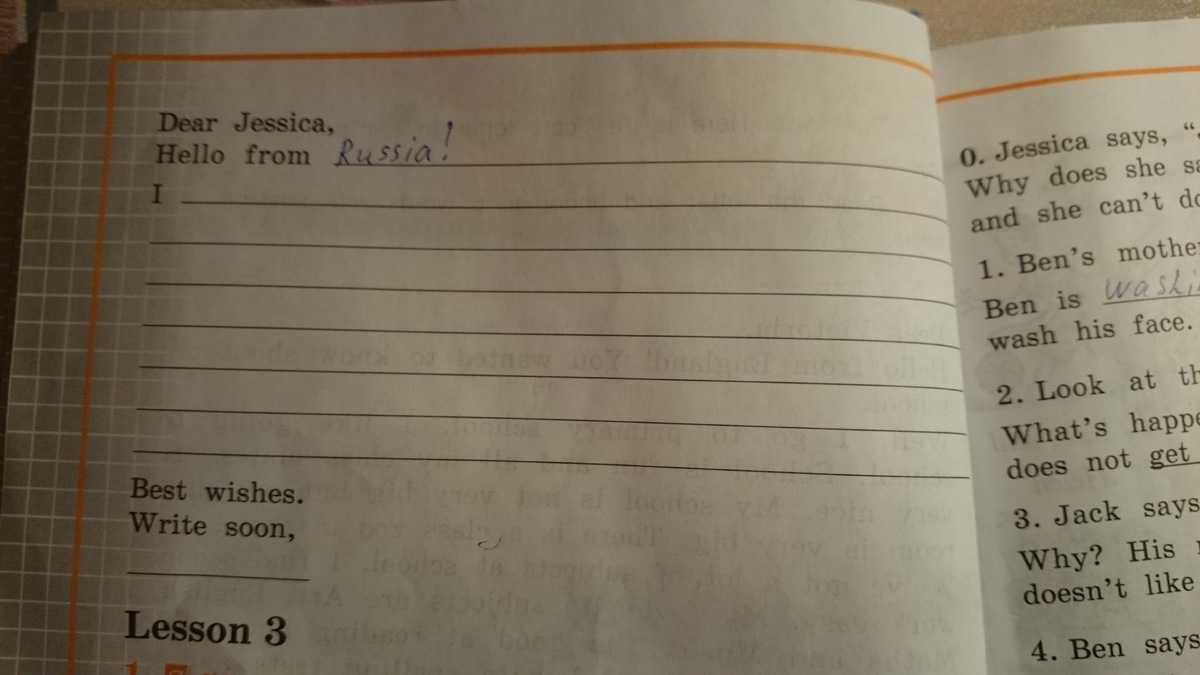 Dear Jessica,
Hello from Russia!
I
Best wishes.
Write soon,
Lesson 3
1.
0. Jessica says, “
Why does she
and she can't
1. Ben's
Ben is
wash his face.
2. Look at
What's
does not get
3. Jack says
Why? His
doesn't like
4. Ben says